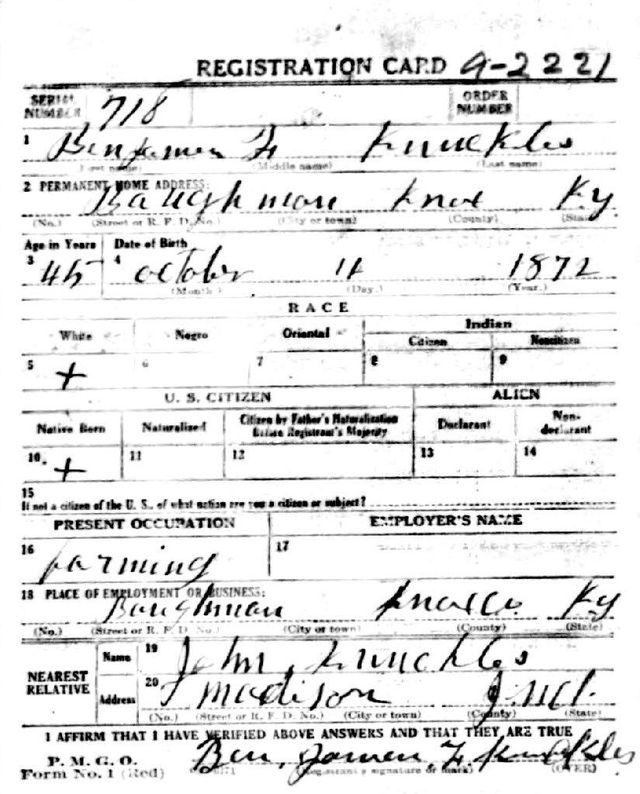 REGISTRATION CARD 9-2221
SERIAL NUMBER 718 ORDER NUMBER
1 Benjamen F Knuckles
(First name) (Middle name) (Last name)
2 PERMANENT HOME ADDRESS: Baughman Knox Ky
(No.) (Street or R. F. D. No.) (City or town) (County) (State)
Age in Years Date of Birth
3 45 4 October 11 1872
(Month) (Day.) (Year.)
RACE
White Negro Oriental Indian
Citizen Noncitizen
5 + 6 7 8 9
U. S. CITIZEN ALIEN
Native Born Naturalized Citizen by Father's Naturalization Before Registrant's Majority Declarant Non-declarant
10. + 11 12 13 14
15
If not a citizen of the U. S., of what nation are you a citizen or subject?
PRESENT OCCUPATION EMPLOYER'S NAME
16 farming 17
18 PLACE OF EMPLOYMENT OR BUSINESS:
Baughman Ky
(No.) (Street or R. F. D. No.) (City or town) (County) (State)
NEAREST RELATIVE Name 19 John Knuckles
Address 20 Madison
(No.) (Street or R. F. D. No.) (City or town) (County) (State)
I AFFIRM THAT I HAVE VERIFIED ABOVE ANSWERS AND THAT THEY ARE TRUE
P. M. G. O.
Form No. 1 (Red) Ben, Jamen F Knuckles
(Registrant's signature or mark) (OVER)